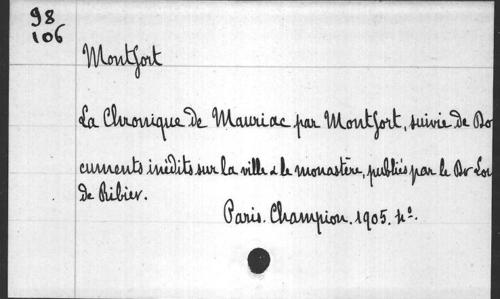 98
106
Montfort
La Chronique de Mauriac par Montfort, suivie de Do
cuments inédits sur la ville & le monastère, publiés par le Dr Lou
de Ribier.
Paris. Champion. 1905. 4º.